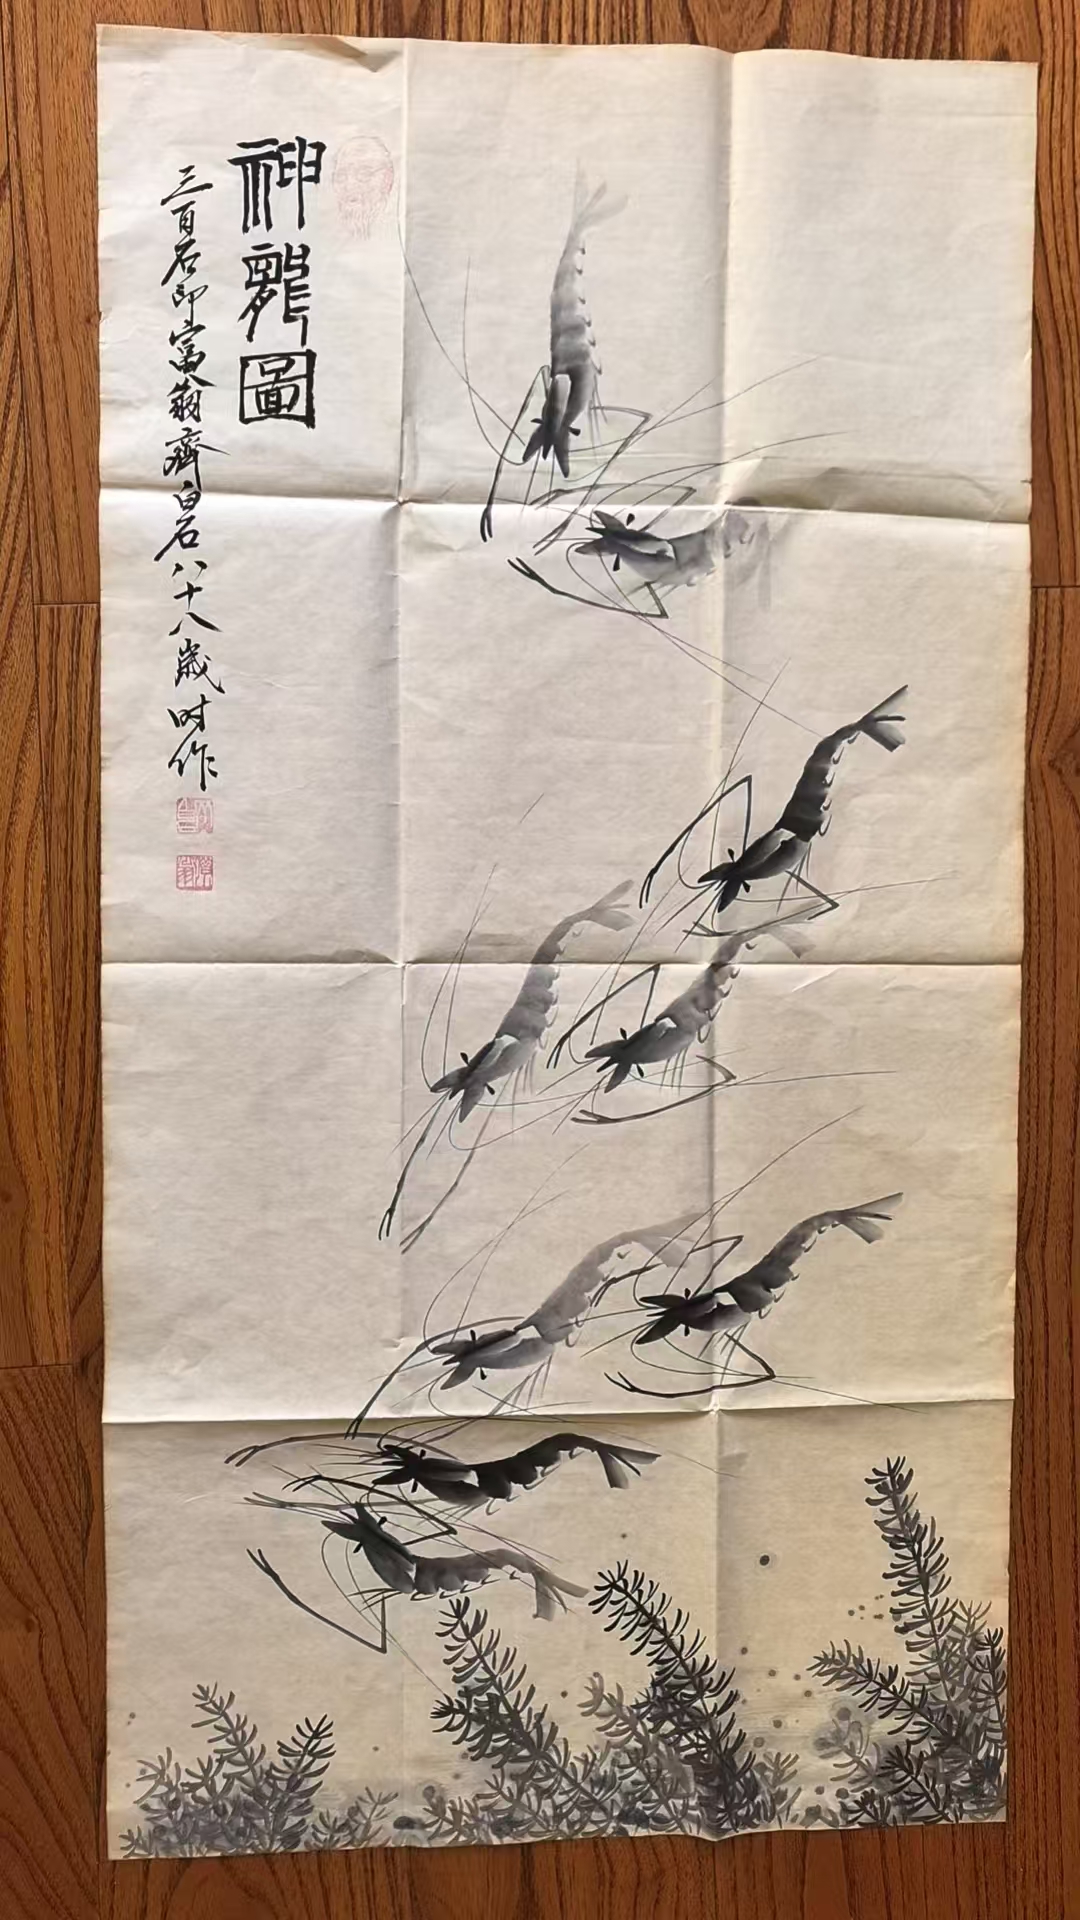 神龍圖
三百石印富翁齊白石八十八歲时作